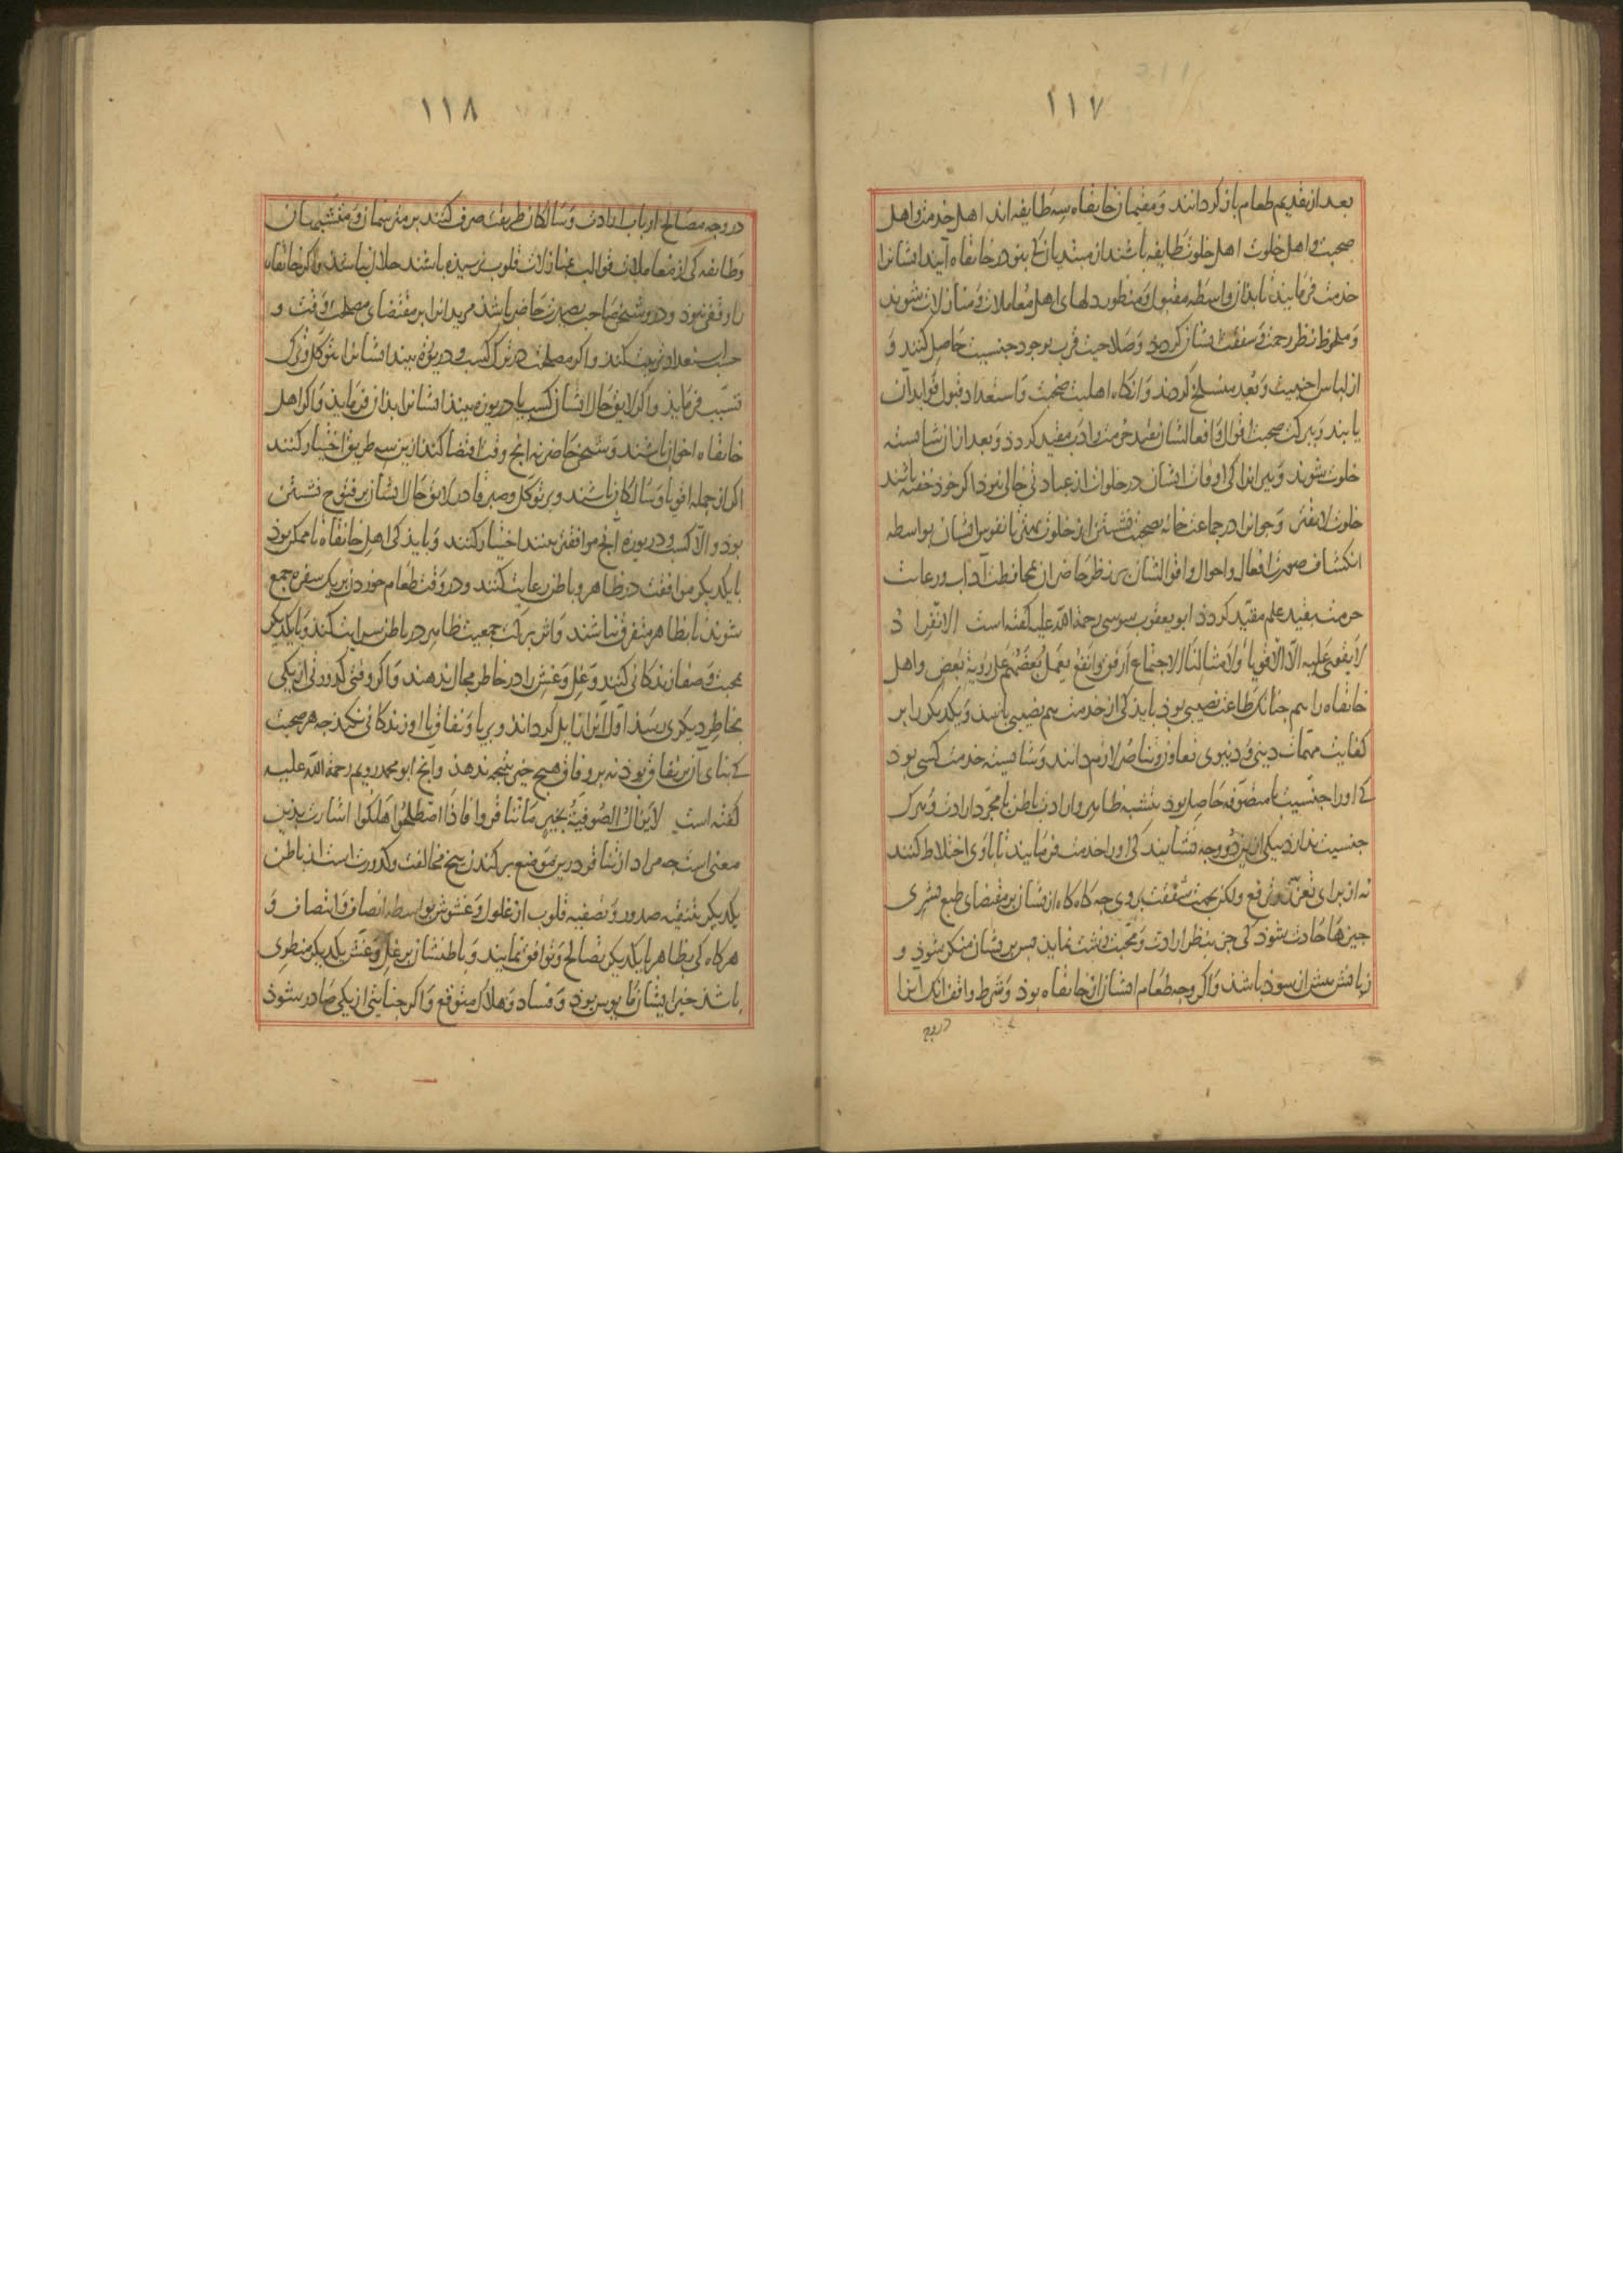 ١١٧
بعد از تقدیم طعام باز کردانند و مقیمان خانقاه سه طایفه اند اهل خدمت و اهل
صحبت و اهل خلوت اهل خلوت طایفه باشند از مبتدیان کی بنو در خانقاه آیند ایشانرا
خدمت فرمایند تا بذان واسطه مقبول و منظور دلهای اهل معاملات و منازلات شوند
و ملحوظ نظر رحمت و شفقت ایشان کردند و صلاحیت قرب بوجود جنسیت حاصل کنند و
از لباس اجنبیت و بعد منسلخ کردند و انکاه اهلیت صحبت و استعداد قبول فواید آن
یابند و ببرکت صحبت اقوال و افعالشان بقید حرمت و ادب مقید کردد و بعد از آن شایسته
خلوت شوند و پیرانرا کی اوقات ایشان در خلوات از عبادتی خالی نبود اکر خود خفته باشند
خلوت لایقتر و جوانرا در جماعت خانه بصحبت نشستن از خلوت بهتر تا نفوس ایشان بواسطه
انکشاف صورت افعال و احوال و اقوالشان بر نظر حاضران بمحافظت آداب و رعایت
حرمت بقید علم مقید کردد ابو یعقوب سوسی رحمة الله علیه کفته است الانفراد
لا یقوی علیه الا الاقویاء و لامثالنا الاجتماع ارفق و انفع یعمل بعضهم علی رؤیة بعض و اهل
خانقاه را هم جنانک طاعت نصیبی بود باید کی از خدمت هم نصیبی باشد و یکدیکر را بر
کفایت مهمات دینی و دنیوی تعاون و تناصر لازم دانند و شایسته خدمت کسی بود
کی او را جنسیت با متصوفه حاصل بود بتشبه ظاهر و ارادت باطن یا مجرد ارادت و هرک
جنسیت ندارد بیکی ازین دو وجه نشایند کی او را خدمت فرمایند تا با وی اختلاط کنند
نه از برای تعزز و ترفع ولکن بجهت شفقت بر وی جه کاه کاه از ایشان بر مقتضای طبع بشری
جیزها حادث شود کی جز بنظر ارادت و محبت زشت نماید بس بر ایشان منکر شود و
زیانش بیش از سود باشد و اکر وجه طعام ایشان از خانقاه بود و شرط واقف انک آنرا
در وجه
١١٨
در وجه مصالح ارباب ارادت و سالکان طریقت صرف کنند بر مترسمان و متشبهان
و طایفه کی از معاملات قوالب بمنازلات قلوب نرسیده باشند حلال نباشد و اکر خانقاه
را وقفی نبود و درو شیخی صاحب بصیرت حاضر باشد مریدانرا بر مقتضای مصلحت وقت و
حسب استعداد تربیت کند و اکر مصلحت در ترک کسب و دریوزه بیند ایشانرا بتوکل و ترک
تسبب فرماید و اکر لایق حال ایشان کسب یا دریوزه بیند ایشانرا بذان فرماید و اکر اهل
خانقاه اخوان باشند و شیخی حاضر نه انج وقت اقتضا کند ازین سه طریق اختیار کنند
اکر از جمله اقویا و سالکان باشند و بر توکل و صبر قادر لایق حال ایشان بر فتوح نشستن
بود و الا کسب و دریوزه انج موافقتر بینند اختیار کنند و باید کی اهل خانقاه تا ممکن بود
با یکدیکر موافقت در ظاهر و باطن رعایت کنند و در وقت طعام خوردن بر یک سفره جمع
شوند تا بظاهر متفرق نباشند و اثر برکت جمعیت ظاهر در باطن سرایت کند و با یکدیکر
بمحبت و صفا زندکانی کنند و غل و غش را در خاطر مجال ندهند و اکر وقتی کدورتی از یکی
بخاطر دیکری رسد اولا آنرا زایل کرداند و بریا و نفاق با او زندکانی نکند جه هر صحبت
کی بنای آن بر نفاق بود نه بر وفاق هیج خیر نتیجه ندهد و انج ابو محمد رویم رحمة الله علیه
کفته است لا یزال الصوفیة بخیر ما تنافروا فاذا اصطلحوا هلکوا اشارت بذین
معنی است جه مراد از تنافر درین موضع برکندن بیخ مخالفت و کدورت است از باطن
یکدیکر بتنقیه صدور و تصفیه قلوب از غلول و غشوش بواسطه انصاف و انتصاف و
هرکاه کی بظاهر با یکدیکر تصالح و توافق نمایند و باطنشان بر غل و غش یکدیکر منطوی
باشد خیر از ایشان مأیوس بود و فساد و هلاک متوقع و اکر جنایتی از یکی صادر شود